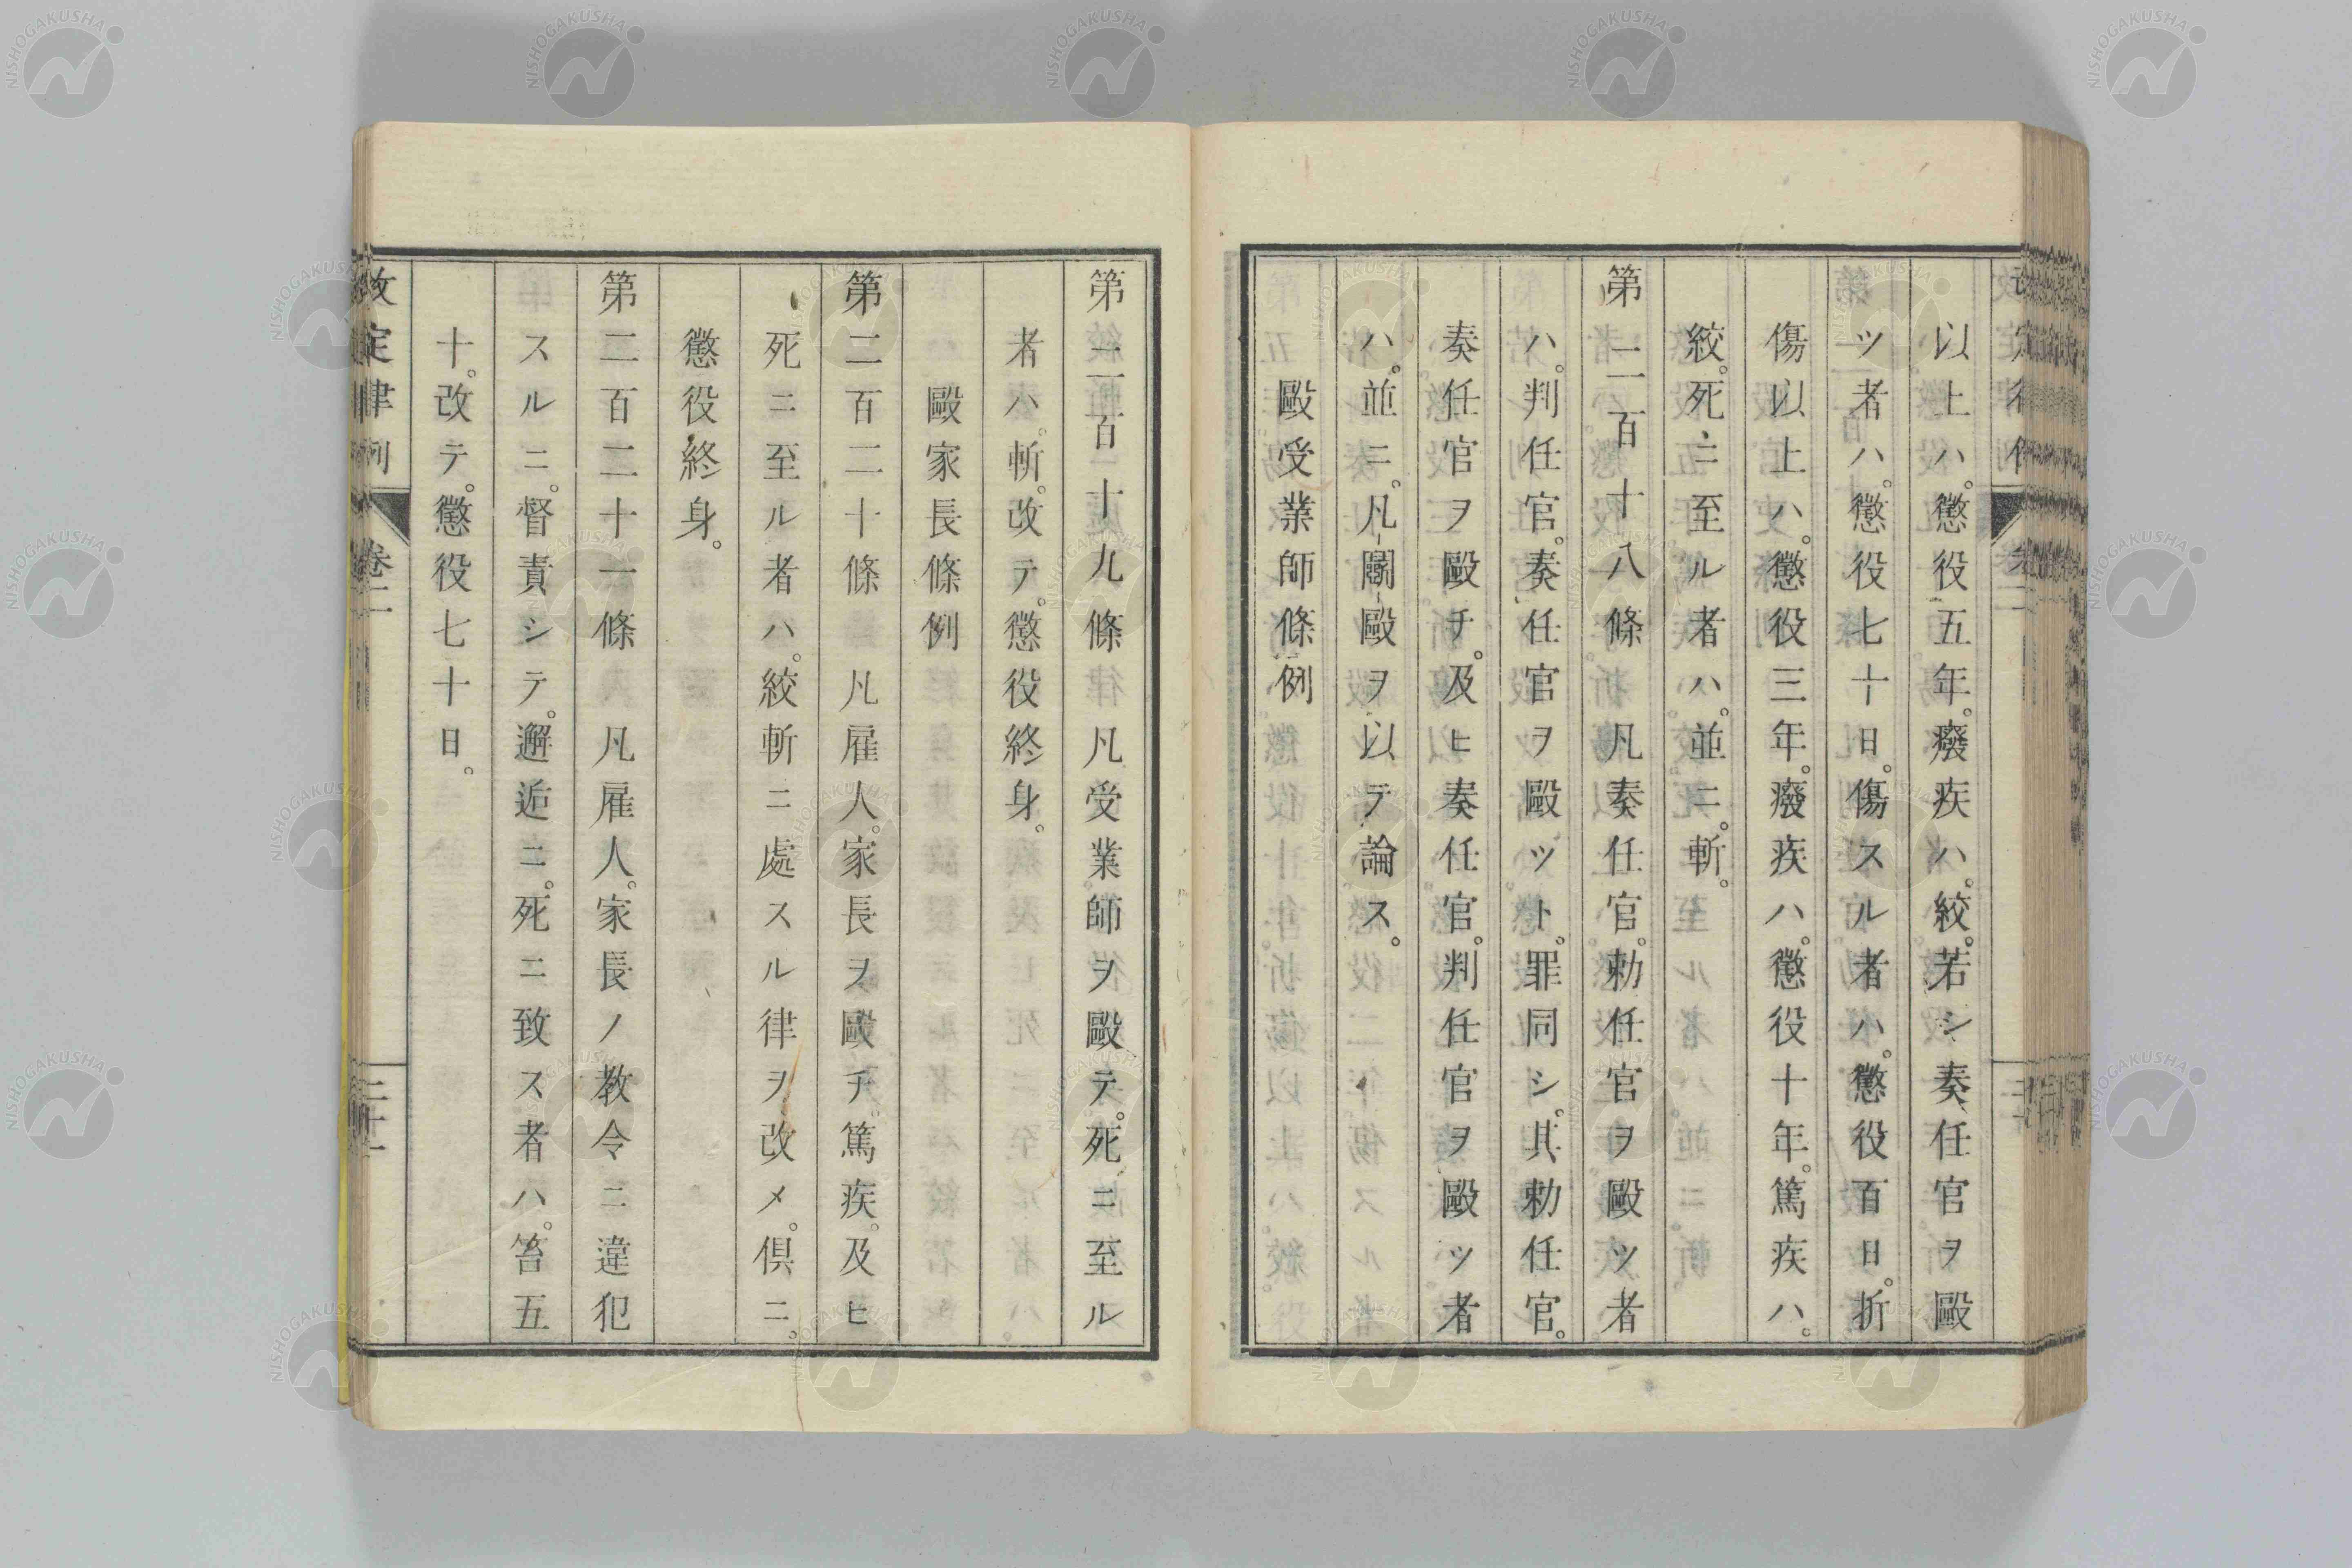 以上ハ。懲役五年。癈疾ハ。絞。若シ奏任官ヲ毆
ツ者ハ。懲役七十日。傷スル者ハ。懲役百日。折
傷以上ハ。懲役三年。癈疾ハ。懲役十年。篤疾ハ。
絞。死ニ至ル者ハ。並ニ。斬。
第二百十八條 凡奏任官。勅任官ヲ毆ツ者
ハ。判任官。奏任官ヲ毆ツト。罪同シ。其勅任官。
奏任官ヲ毆チ。及ヒ奏任官。判任官ヲ毆ツ者
ハ。並ニ。凡鬭毆ヲ以テ論ス。
毆受業師條例
第二百十九條 凡受業師ヲ毆テ。死ニ至ル
者ハ。斬。改テ。懲役終身。
毆家長條例
第二百二十條 凡雇人。家長ヲ毆チ篤疾。及ヒ
死ニ至ル者ハ。絞斬ニ處スル律ヲ改メ。倶ニ。
懲役終身。
第二百二十一條 凡雇人。家長ノ教令ニ違犯
スルニ。督責シテ。邂逅ニ。死ニ致ス者ハ。笞五
十。改テ。懲役七十日。
改定律例 卷二 三十一
NISHOGAKUSHA